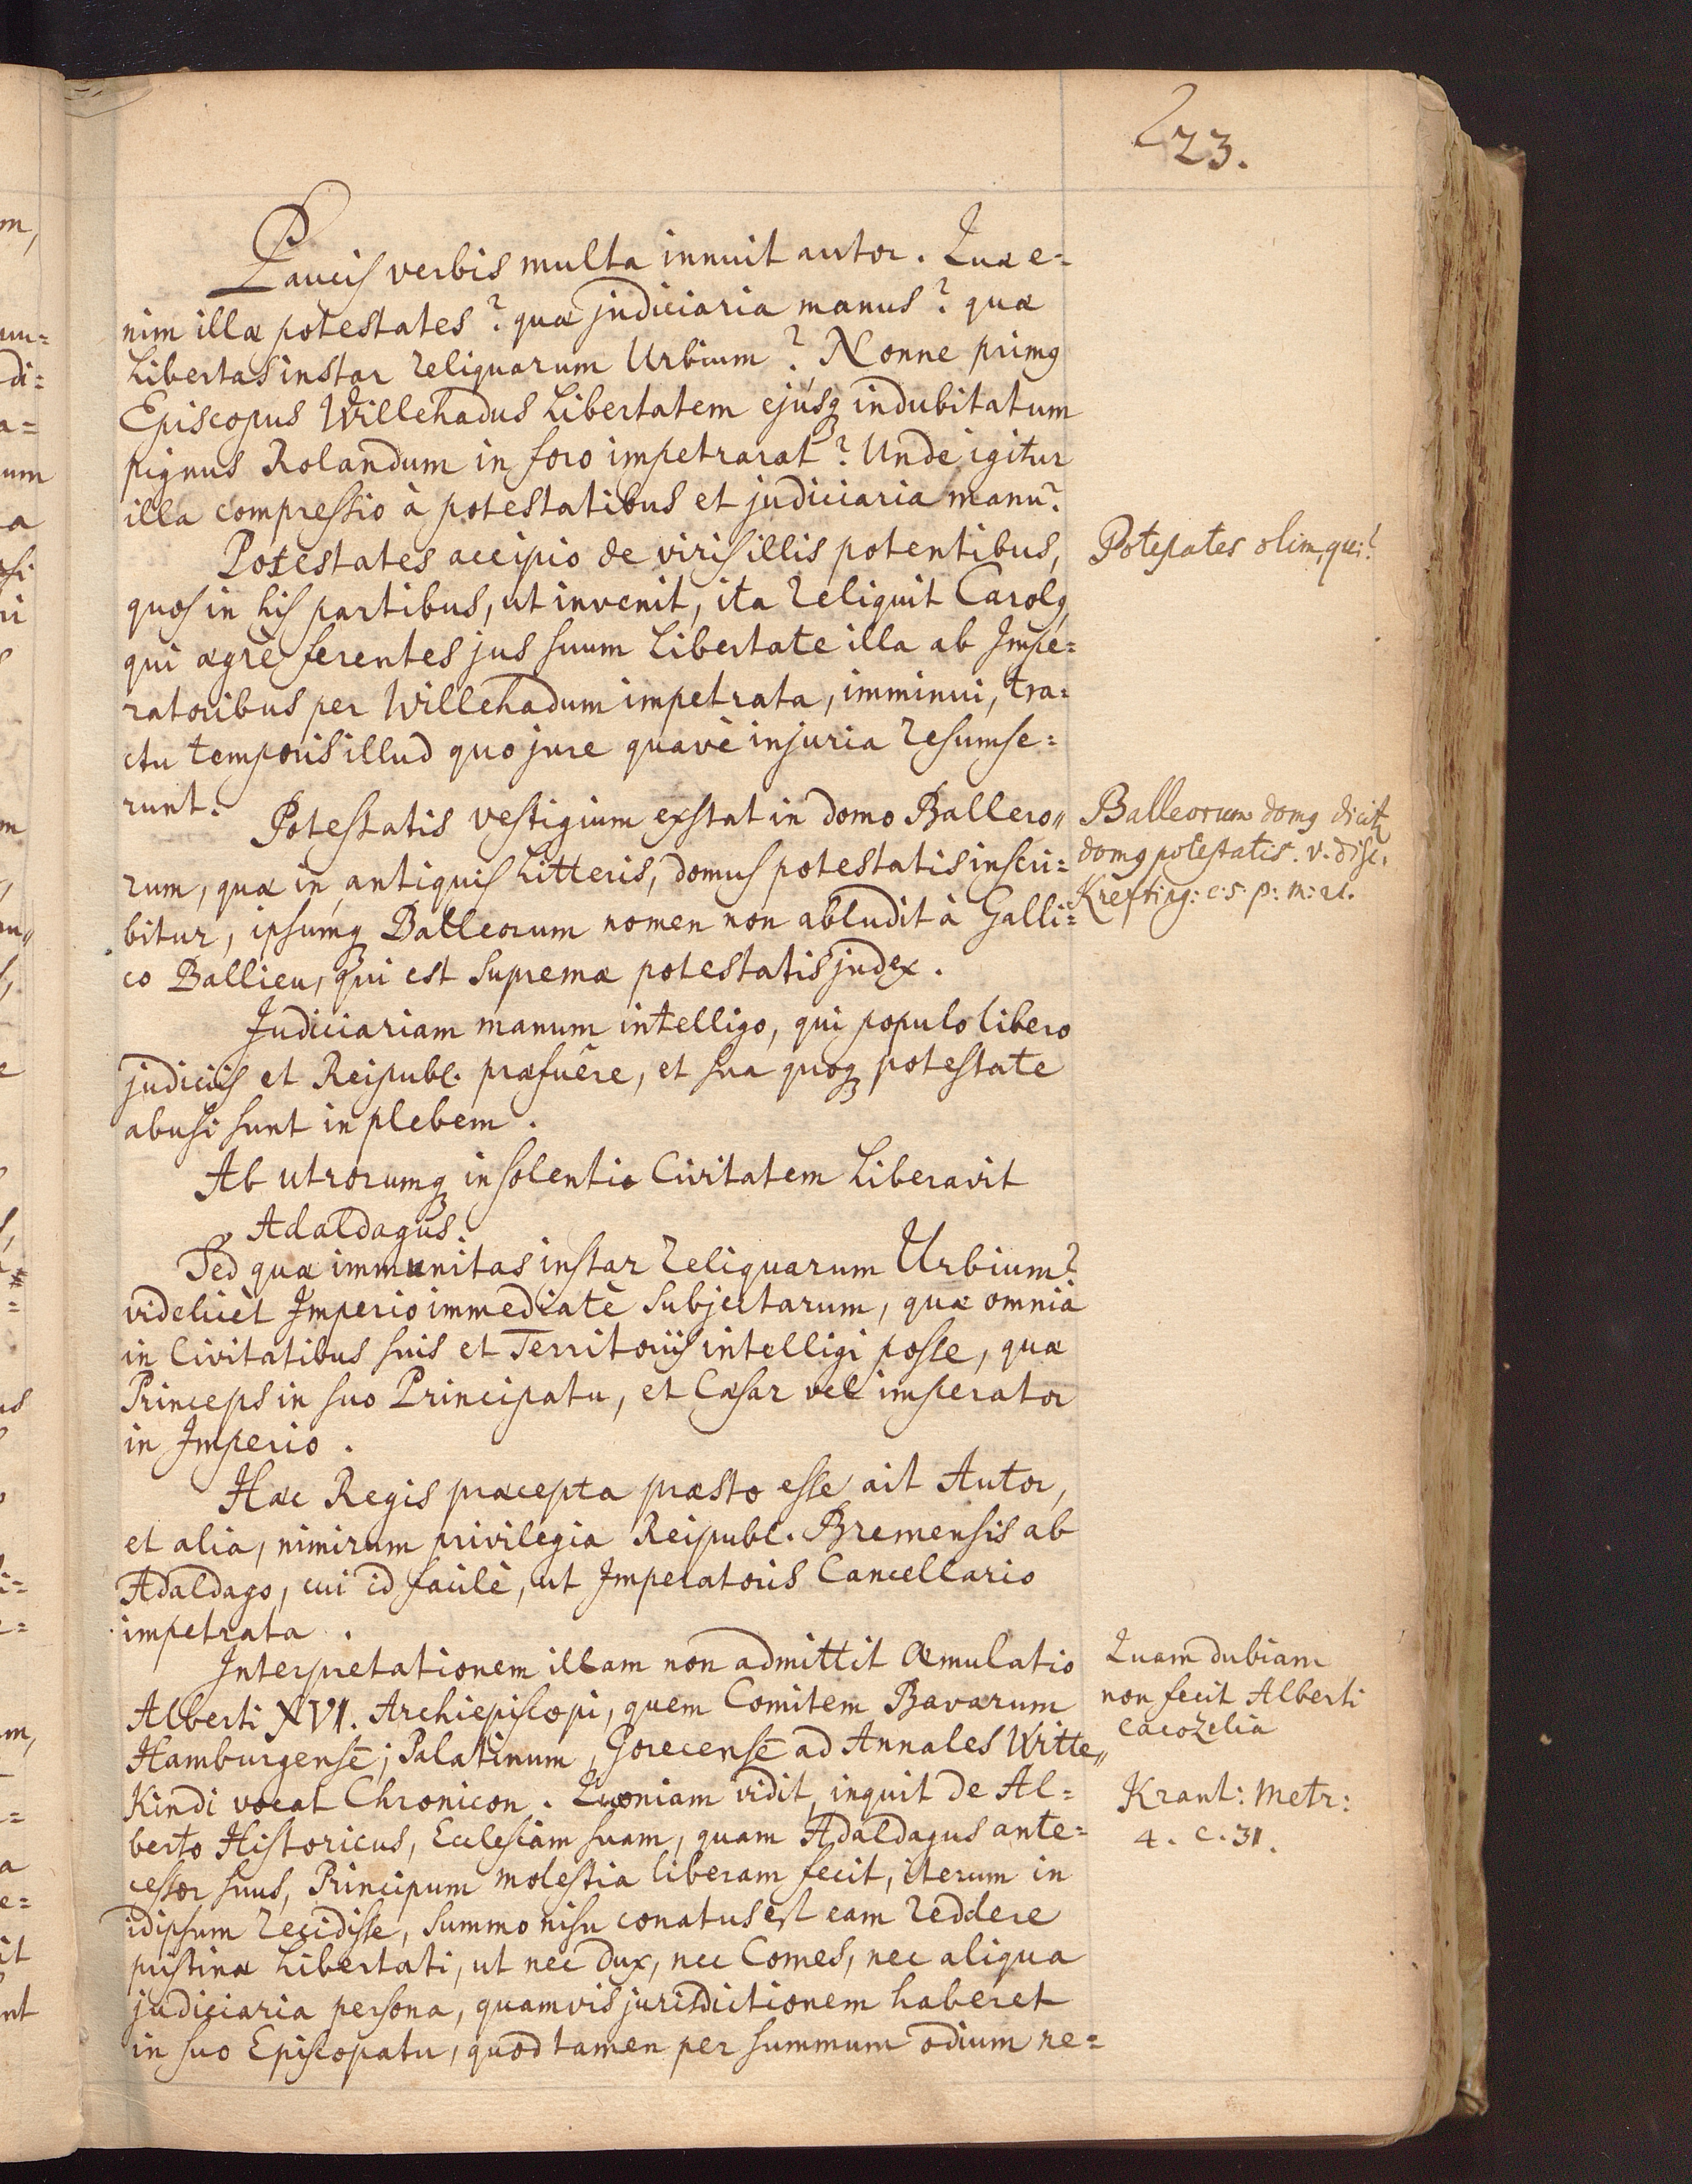 223.
Paucis verbis multa innuit autor. Quæ e=
nim illæ potestates? quæ judiciaria manus? quæ
Libertas instar reliquarum Urbium? Nonne primꝰ
Episcopus Willehadus Libertatem ejúsqꝫ indubitatum
pignus Rolandum in foro impetrarat? Unde igitur
illa compressio à potestatibus et judiciaria manu?
Potestates accipio de viris illis potentibus,
Potestates olim, qui?
quos in his partibus, ut invenit, ita reliquit Carolꝰ,
qui ægrè ferentes jus suum Libertate illa ab Impe=
ratoribus per Willehadum impetrata, imminui, tra=
ctu temporis illud quo jure quavè injuria resumse=
runt.
Potestatis vestigium exstat in domo Ballero〃
Balleorum domꝰ dicitꝛ
domꝰ potestatis. v. disc.
Krefting: c: 5. p: m: 21.
rum, quæ in antiquis Litteris, domus potestatis inscri=
bitur, ipsúmqꝫ Balleorum nomen non abludit à Galli=
co Ballieu, qui est supremæ potestatis judex.
Judiciariam manum intelligo, qui populo libero
judiciis et Reipubl. præfuêre, et sua quoqꝫ potestate
abusi sunt in plebem.
Ab utrorumqꝫ insolentia Civitatem Liberavit
Adaldagus.
Sed quæ immunitas instar reliquarum Urbium?
videlicèt Imperio immediatè subjectarum, quæ omnia
in Civitatibus suis et Territoriis intelligi posse, quæ
Princeps in suo Principatu, et Cæsar vel imperator
in Imperio.
Hæc Regis præcepta præsto esse ait Autor,
et alia, nimirum privilegia Reipubl. Bremensis ab
Adaldago, cui id facilè, ut Imperatoris Cancellario
impetrata.
Interpretationem illam non admittit Æmulatio
Quam dubiam
non fecit Alberti
cacozelia
Alberti XVI. Archiepiscopi, quem Comitem Bavarum
Hamburgense; Palatinum, Gorecensē ad Annales Witte〃
Kindi vocat Chronicon. Quoniam vidit, inquit de Al=
Krant: Metr:
4. c. 31.
berto Historicus, Ecclesiam suam, quam Adaldagus ante=
cessor suus, Principum molestia liberam fecit, iterum in
idipsum recidisse, summo nisu conatus est eam reddere
pristinæ Libertati, ut nec dux, nec Comes, nec aliqua
judiciaria persona, quamvis jurisdictionem haberet
in suo Episcopatu, quod tamen per summum odium ne=